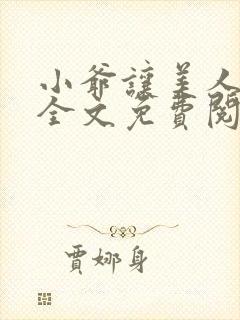 小爺讓美人
全文免費閱
賈娜身